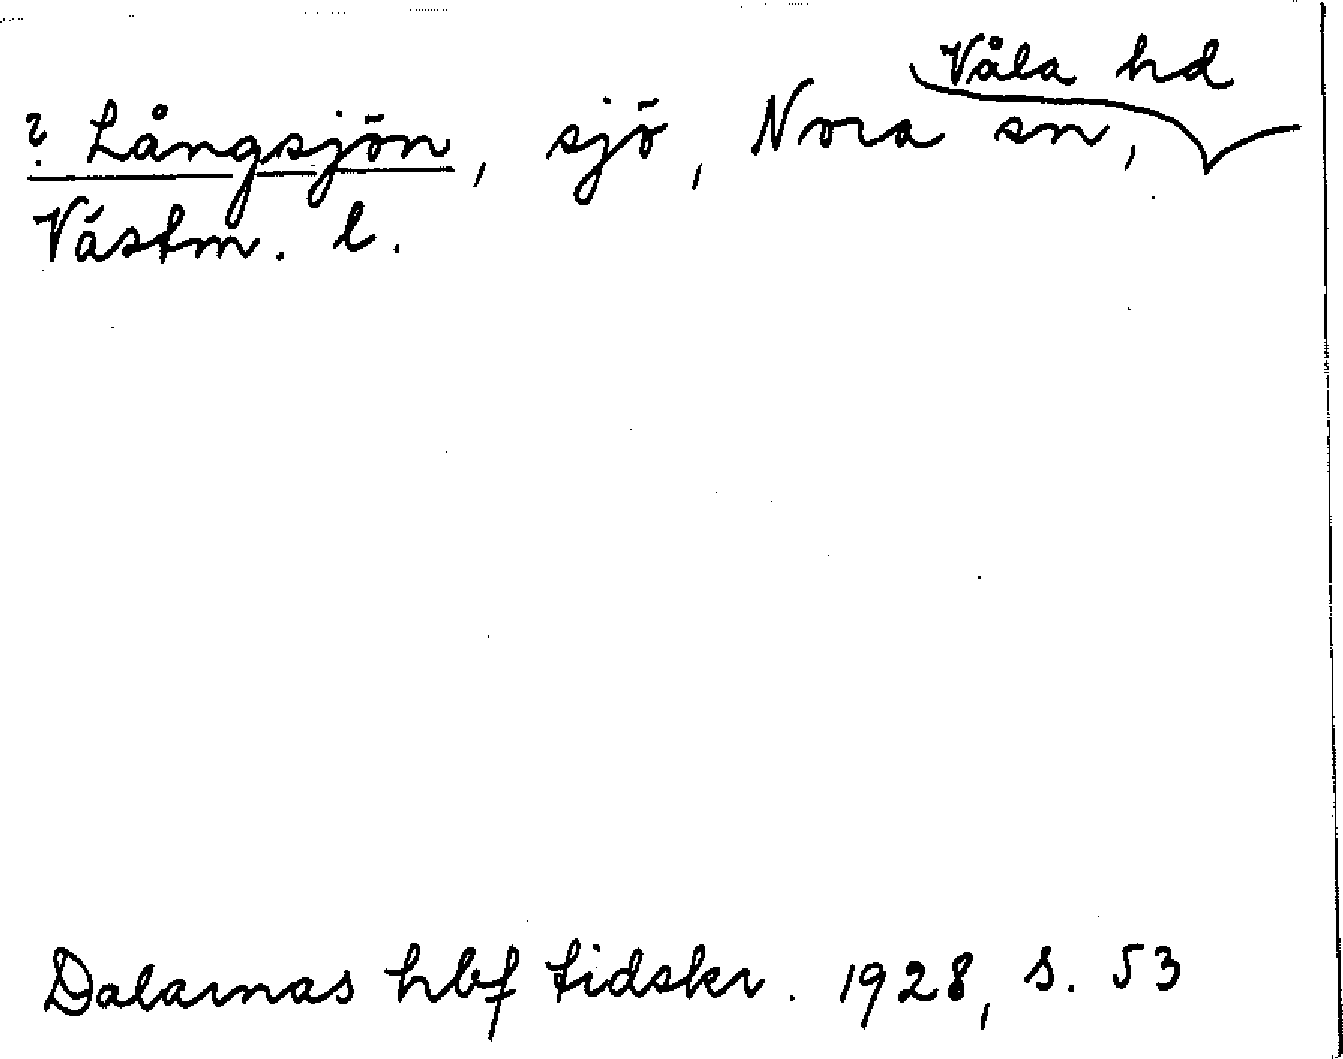 Våla hd
? Långsjön, sjö, Nora sn,
Västm. l.
Dalarnas hbf tidskr. 1928, s. 53